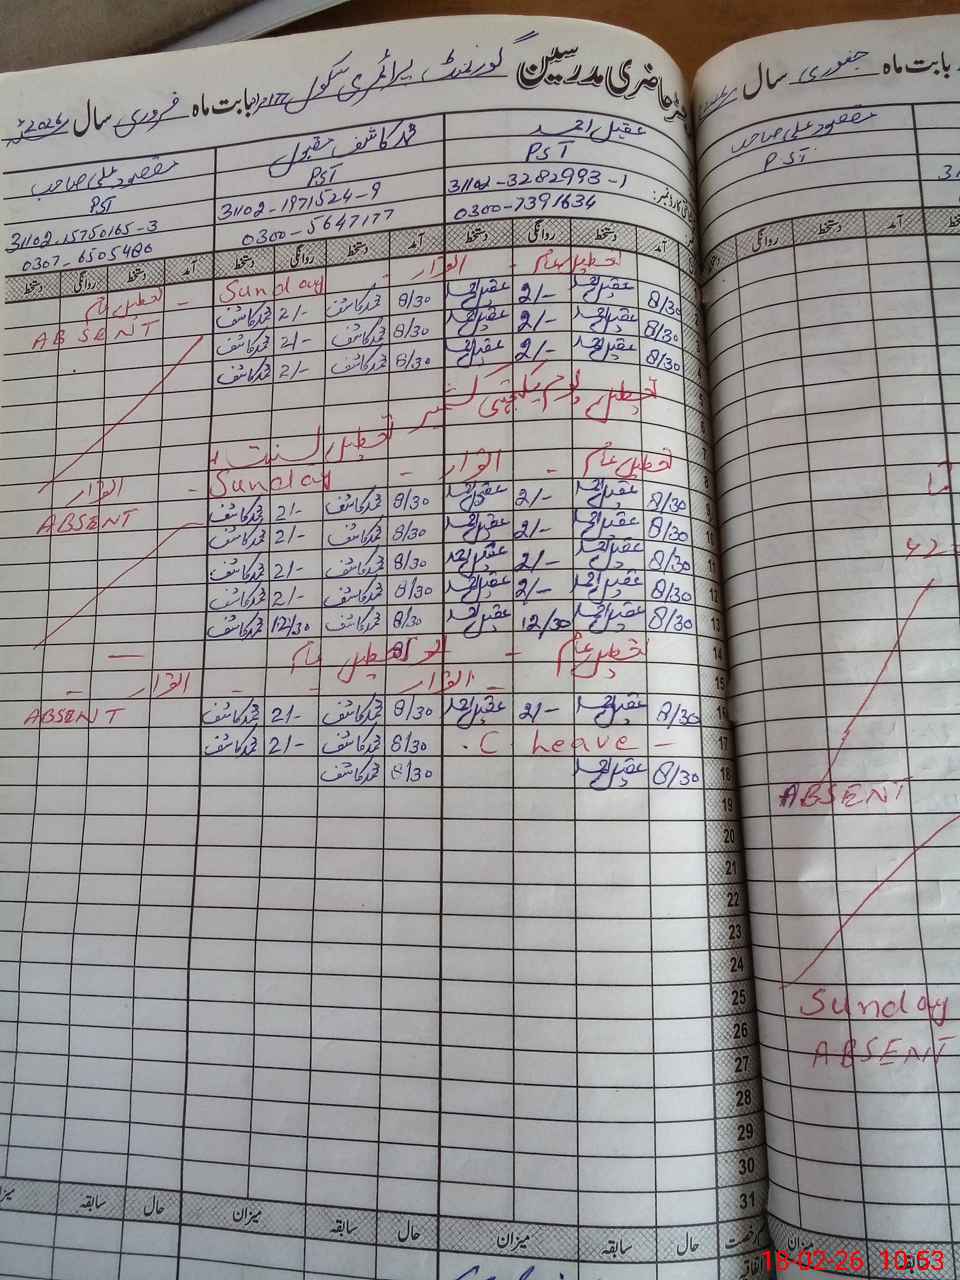 حاضری مدرسین گورنمنٹ پرائمری سکول بابت ماہ فروری سال 2026ء
عقیل احمد محمد کاشف مقبول مقصود علی صاحب
PST PST PST
31102-3282993-1 31102-1971524-9 31102-15750165-3
0300-7391634 0300-5647177 0307-6505486
آمد دستخط روانگی دستخط آمد دستخط روانگی دستخط آمد روانگی دستخط
تعطیل عام - اتوار - Sunday - تعطیل عام
8/30 عقیل احمد 2/- عقیل احمد 8/30 محمد کاشف 2/- محمد کاشف ABSENT
8/30 عقیل احمد 2/- عقیل احمد 8/30 محمد کاشف 2/- محمد کاشف
8/30 عقیل احمد 2/- عقیل احمد 8/30 محمد کاشف 2/- محمد کاشف
5 تعطیل یوم یکجہتی کشمیر
6
7 تعطیل
8 تعطیل عام - اتوار - Sunday - اتوار
9 8/30 عقیل احمد 2/- عقیل احمد 8/30 محمد کاشف 2/- محمد کاشف ABSENT
10 8/30 عقیل احمد 2/- عقیل احمد 8/30 محمد کاشف 2/- محمد کاشف
11 8/30 عقیل احمد 2/- عقیل احمد 8/30 محمد کاشف 2/- محمد کاشف
12 8/30 عقیل احمد 2/- عقیل احمد 8/30 محمد کاشف 2/- محمد کاشف
13 8/30 عقیل احمد 12/30 عقیل احمد 8/30 محمد کاشف 12/30 محمد کاشف
14 تعطیل عام - تعطیل عام —
15 - اتوار - - اتوار -
16 8/30 عقیل احمد 2/- عقیل احمد 8/30 محمد کاشف 2/- محمد کاشف ABSENT
17 - C. Leave 8/30 محمد کاشف 2/- محمد کاشف
18 8/30 عقیل احمد 8/30 محمد کاشف
19
20
21
22
23
24
25
26
27
28
29
30
31
رخصت حال سابقہ میزان حال سابقہ میزان حال سابقہ
بابت ماہ جنوری سال
مقصود علی صاحب
PST
آمد دستخط روانگی
ABSENT
Sunday
ABSENT
میزان
18-02-26 10:53